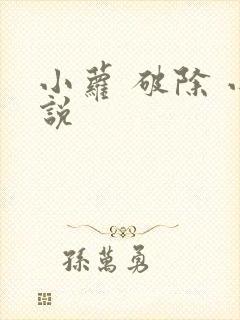 小蘿 破除
說
孫萬勇